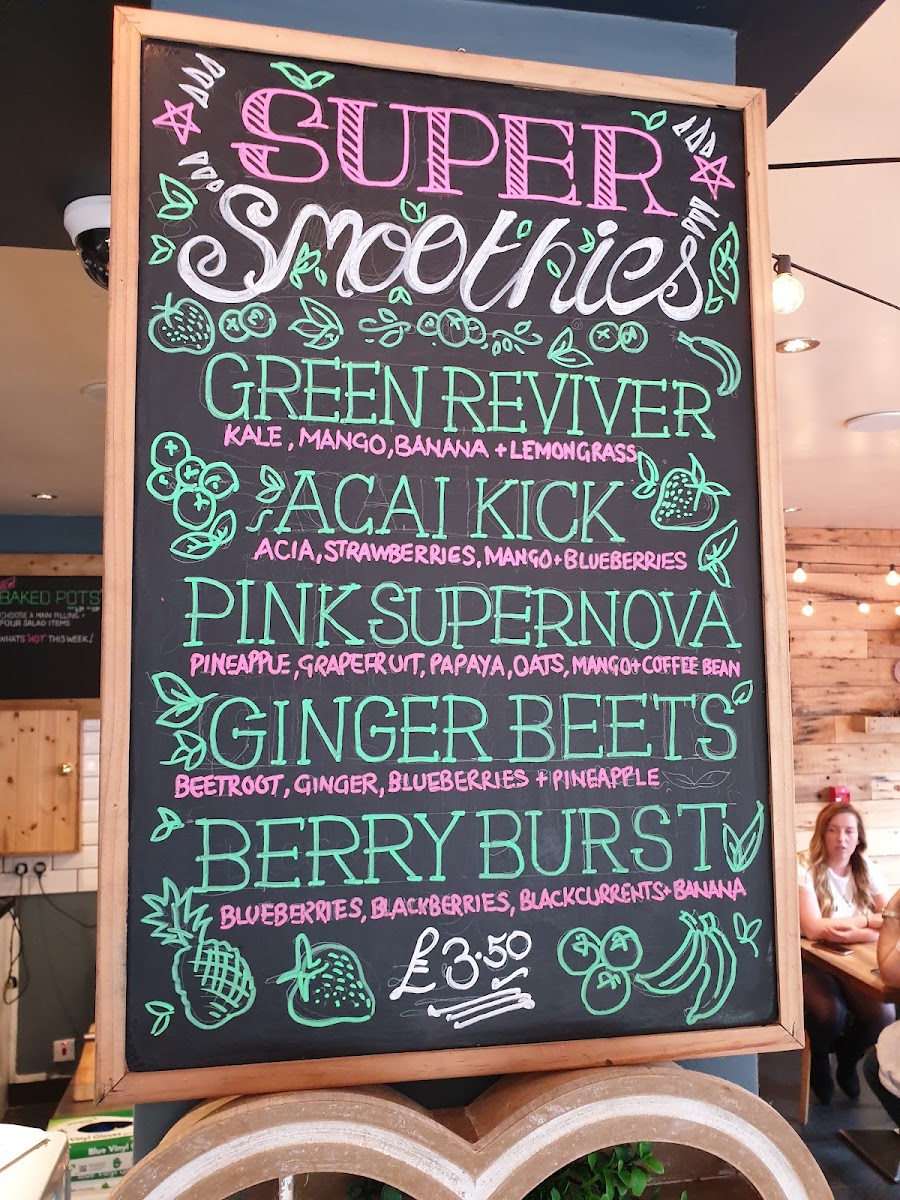 SUPER
Smoothies
GREEN REVIVER
KALE, MANGO, BANANA + LEMONGRASS
ACAI KICK
ACIA, STRAWBERRIES, MANGO + BLUEBERRIES
PINK SUPERNOVA
PINEAPPLE, GRAPEFRUIT, PAPAYA, OATS, MANGO + COFFEE BEAN
GINGER BEETS
BEETROOT, GINGER, BLUEBERRIES + PINEAPPLE
BERRY BURST
BLUEBERRIES, BLACKBERRIES, BLACKCURRENTS + BANANA
£3.50
NEW
BAKED POTS
CHOOSE A MAIN FILLING +
FOUR SALAD ITEMS
WHATS 'HOT' THIS WEEK!
Vinyl Gloves
Blue Vinyl